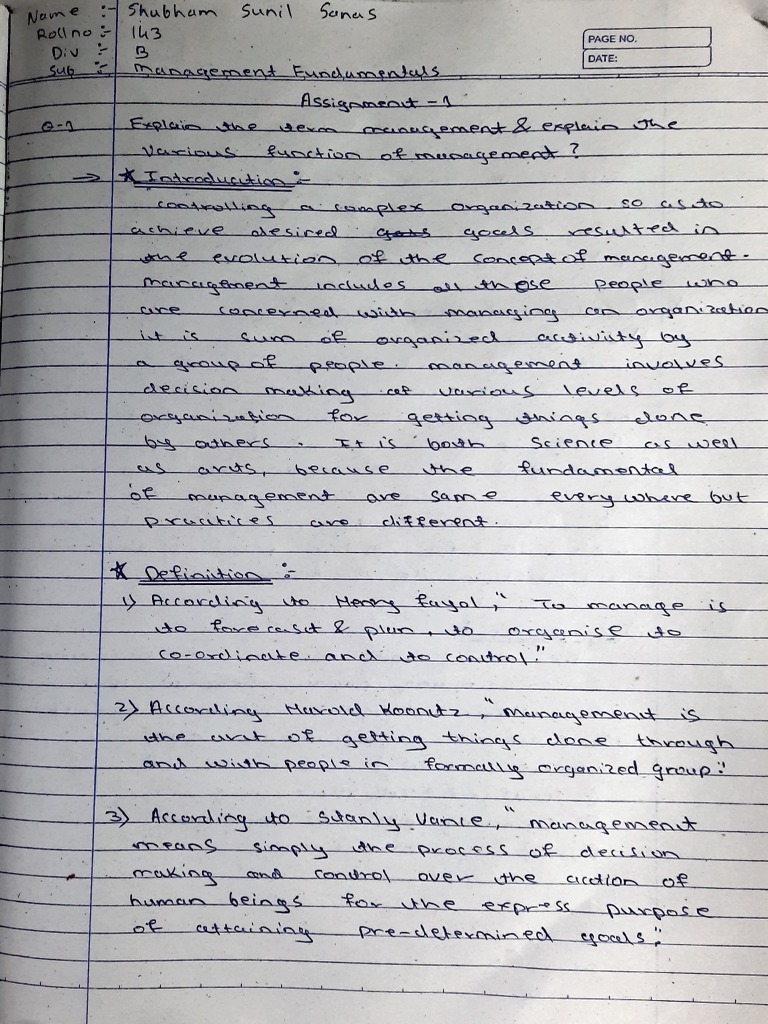 Name :- Shubham Sunil Sanas
Roll no :- 143
Div :- B
Sub :- Management Fundamentals
PAGE NO.
DATE:
Assignment - 1
Q-1 Explain the term management & explain the
various function of management ?
→ * Introducition :-
controlling a complex organization so as to
achieve desired goals resulted in
the evolution of the concept of management.
management includes all those people who
are concerned with managing an organization
it is sum of organized activity by
a group of people. management involves
decision making at various levels of
organization for getting things done
by others. It is both Science as well
as arts, because the fundamental
of management are same every where but
practices are different.
* Definition :-
1) According to Henry fayol, "To manage is
to forecast & plan, to organise to
co-ordinate and to control."
2) According Harold Koontz, "management is
the art of getting things done through
and with people in formally organized group."
3) According to Stanly Vance, "management
means simply the process of decision
making and control over the action of
human beings for the express purpose
of attaining pre-determined goals."